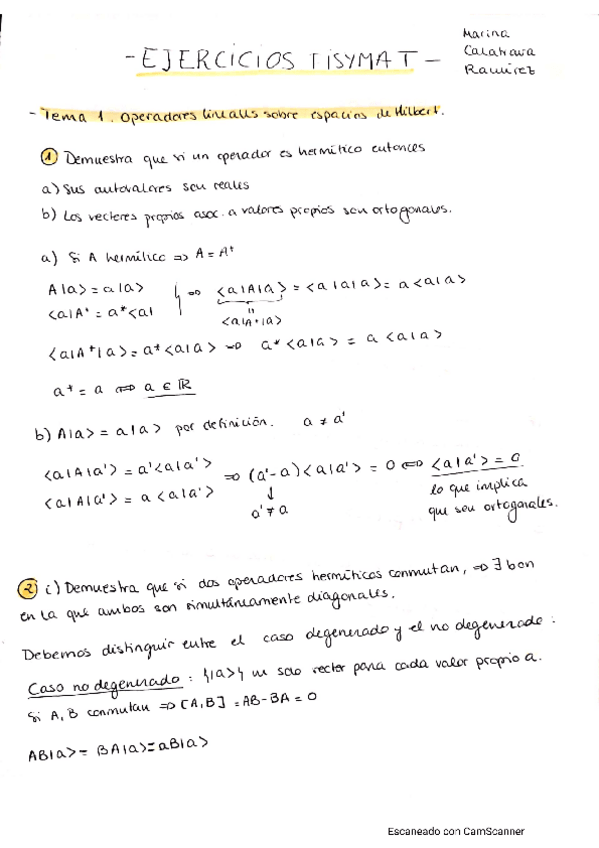 Marina
Calahorra
Ramírez
- EJERCICIOS TISYMAT -
- Tema 1. Operadores lineales sobre espacios de Hilbert.
① Demuestra que si un operador es hermítico entonces
a) Sus autovalores son reales
b) Los vectores propios asoc. a valores propios son ortogonales.
a) Si A hermítico ⇒ A = A⁺
A|a> = a|a>
<a|A⁺ = a*<a|
⇒ <a|A|a> = <a|a|a> = a<a|a>
"
<a|A⁺|a>
<a|A⁺|a> = a*<a|a> ⇒ a*<a|a> = a<a|a>
a* = a ⇔ a ∈ ℝ
b) A|a> = a|a> por definición. a ≠ a'
<a|A|a'> = a'<a|a'>
<a|A|a'> = a<a|a'>
⇒ (a'-a)<a|a'> = 0 ⇔ <a|a'> = 0
↓
a' ≠ a
lo que implica
que son ortogonales.
② i) Demuestra que si dos operadores hermíticos conmutan, ⇒ ∃ bon
en la que ambos son simultáneamente diagonales.
Debemos distinguir entre el caso degenerado y el no degenerado:
Caso no degenerado: {|a>} un solo vector para cada valor propio a.
Si A, B conmutan ⇒ [A,B] = AB-BA = 0
AB|a> = BA|a> = aB|a>
Escaneado con CamScanner